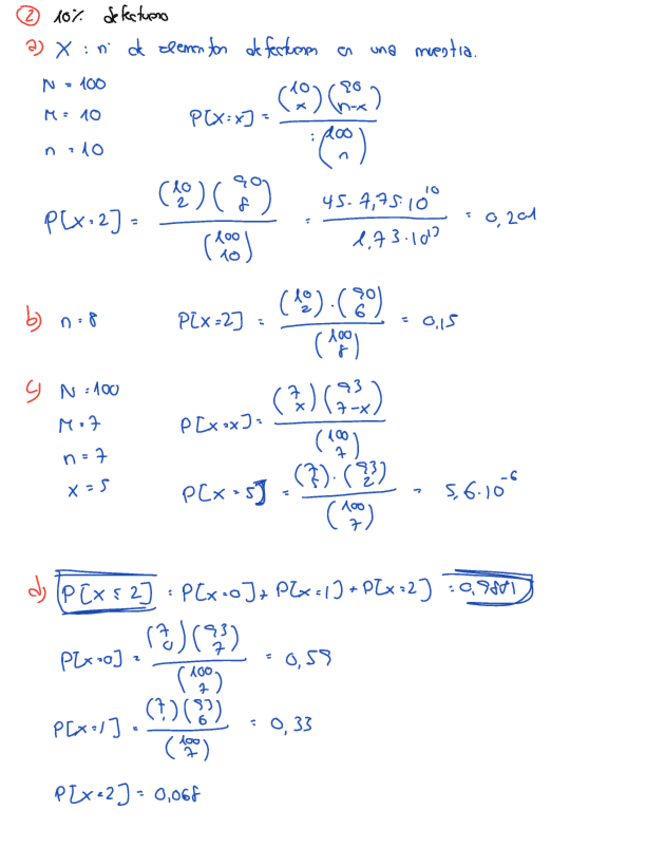 ② 10% defectuoso
a) X : nº de elementos defectuosos en una muestra.
N = 100
M = 10
n = 10
P[X=x] = (10 x)(90 n-x) / (100 n)
P[X=2] = (10 2)(90 8) / (100 10) = 45 · 7,75·10^10 / 1,73·10^13 = 0,201
b) n=8 P[X=2] = (10 2)·(90 6) / (100 8) = 0,15
c) N=100
M=7
n=7
x=5
P[X=x] = (7 x)(93 7-x) / (100 7)
P[X=5] = (7 5)·(93 2) / (100 7) = 5,6·10^-6
d) P[X≤2] = P[X=0] + P[X=1] + P[X=2] = 0,9881
P[X=0] = (7 0)(93 7) / (100 7) = 0,59
P[X=1] = (7 1)(93 6) / (100 7) = 0,33
P[X=2] = 0,068